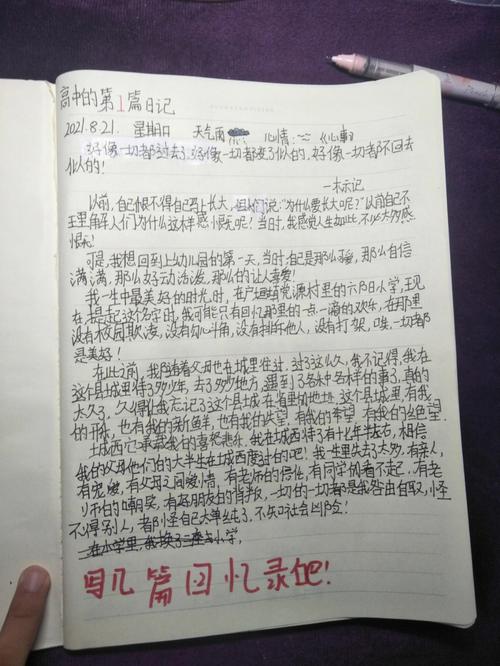 高中的第1篇日记
2021.8.21. 星期日 天气雨 心情: 《心事》
好像一切都过去了,好像一切都变了似的,好像一切都不回去
似的!
一木示记
以前,自己恨不得自己马上长大,但人们说:“为什么要长大呢?”以前自己不
理解人们为什么这样感恨呢?当时,我感觉人生如此,不必太多感
恨!
可是,我想回到上幼儿园的第一天,当时自己是那么可爱,那么自信
满满,那么好动活泼,那么的让人喜爱!
我一生中最美好的时光时,在产业党源村里的六阝日小学,现
在提起这个名字时,我可能只有回忆那里的一点一滴的欢乐,在那里
没有校园欺凌,没有勾心斗角,没有排斥他人,没有打架,唉,一切都
是美好!
在此之前,我随着父母也在城里住过,过了这么久,我不记得,我在
这个县城里待了多少年,去了多少地方,遇到了各种各样的事了,真的
太久了,久得让我忘记了这个县城在省里的地址,这个县城里,有我
的开心,也有我的新鲜,也有我的失望,有我的希望,有我的绝望.
城西它承载我的喜怒悲乐,我在城西待了有十七年半左右,相信
我的父母他们的大半生在城西度过的吧!我一生里失去了太多,有亲人,
有宠爱,有父母之间爱情,有老师的信任,有同学们看不起,有老
师的嘲笑,有好朋友的背叛,一切的一切都是我咎由自取,怪
不得别人,都怪自己太单纯了,不知社会凶险!
在小学里,我换了三座小学,
写几篇回忆录吧!